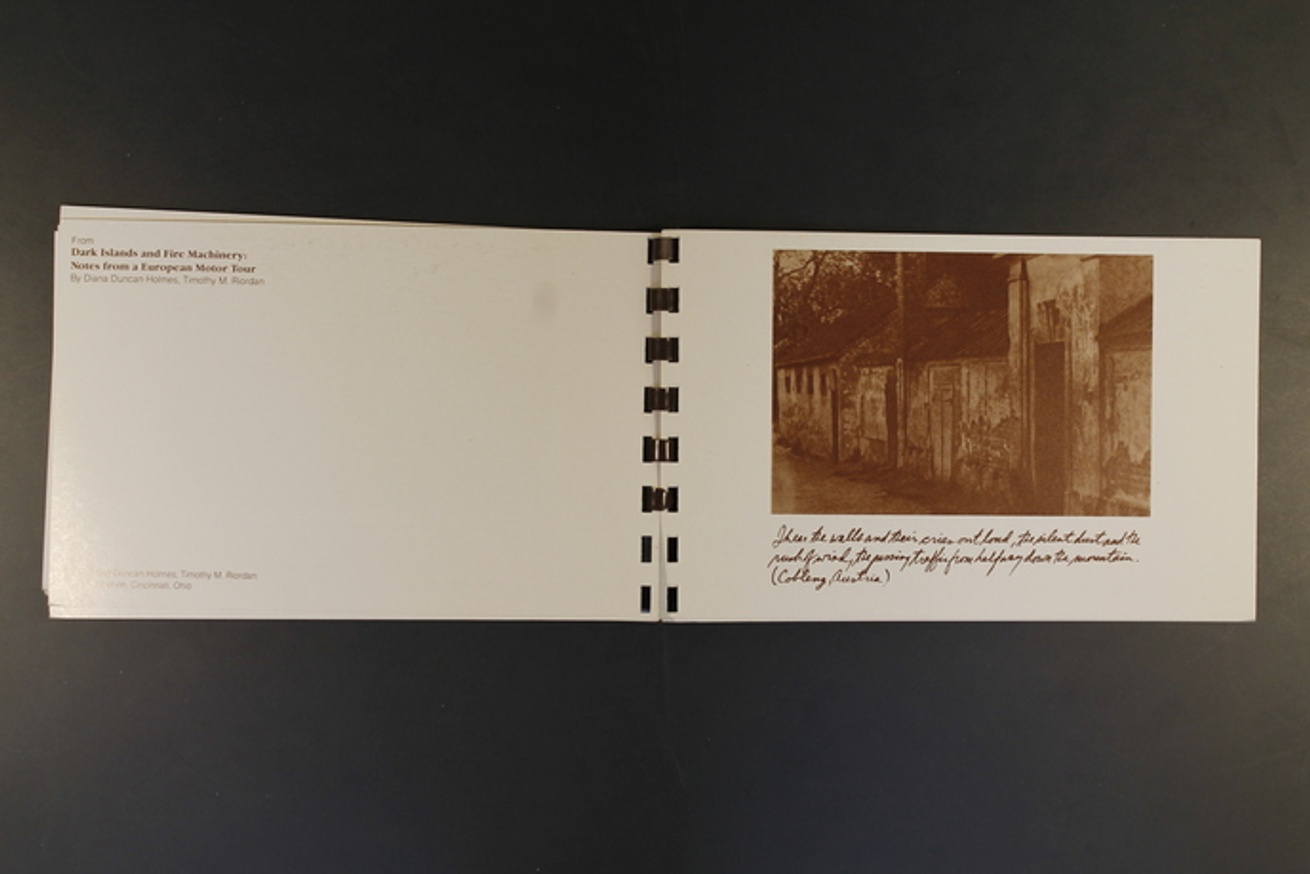 From
Dark Islands and Fire Machinery:
Notes from a European Motor Tour
By Diana Duncan Holmes, Timothy M. Riordan
Duncan Holmes, Timothy M. Riordan
Cincinnati, Ohio
I hear the walls and their cries out loud, the silent dust and the
rush of wind, the passing traffic from halfway down the mountain.
(Cobleng, Austria)